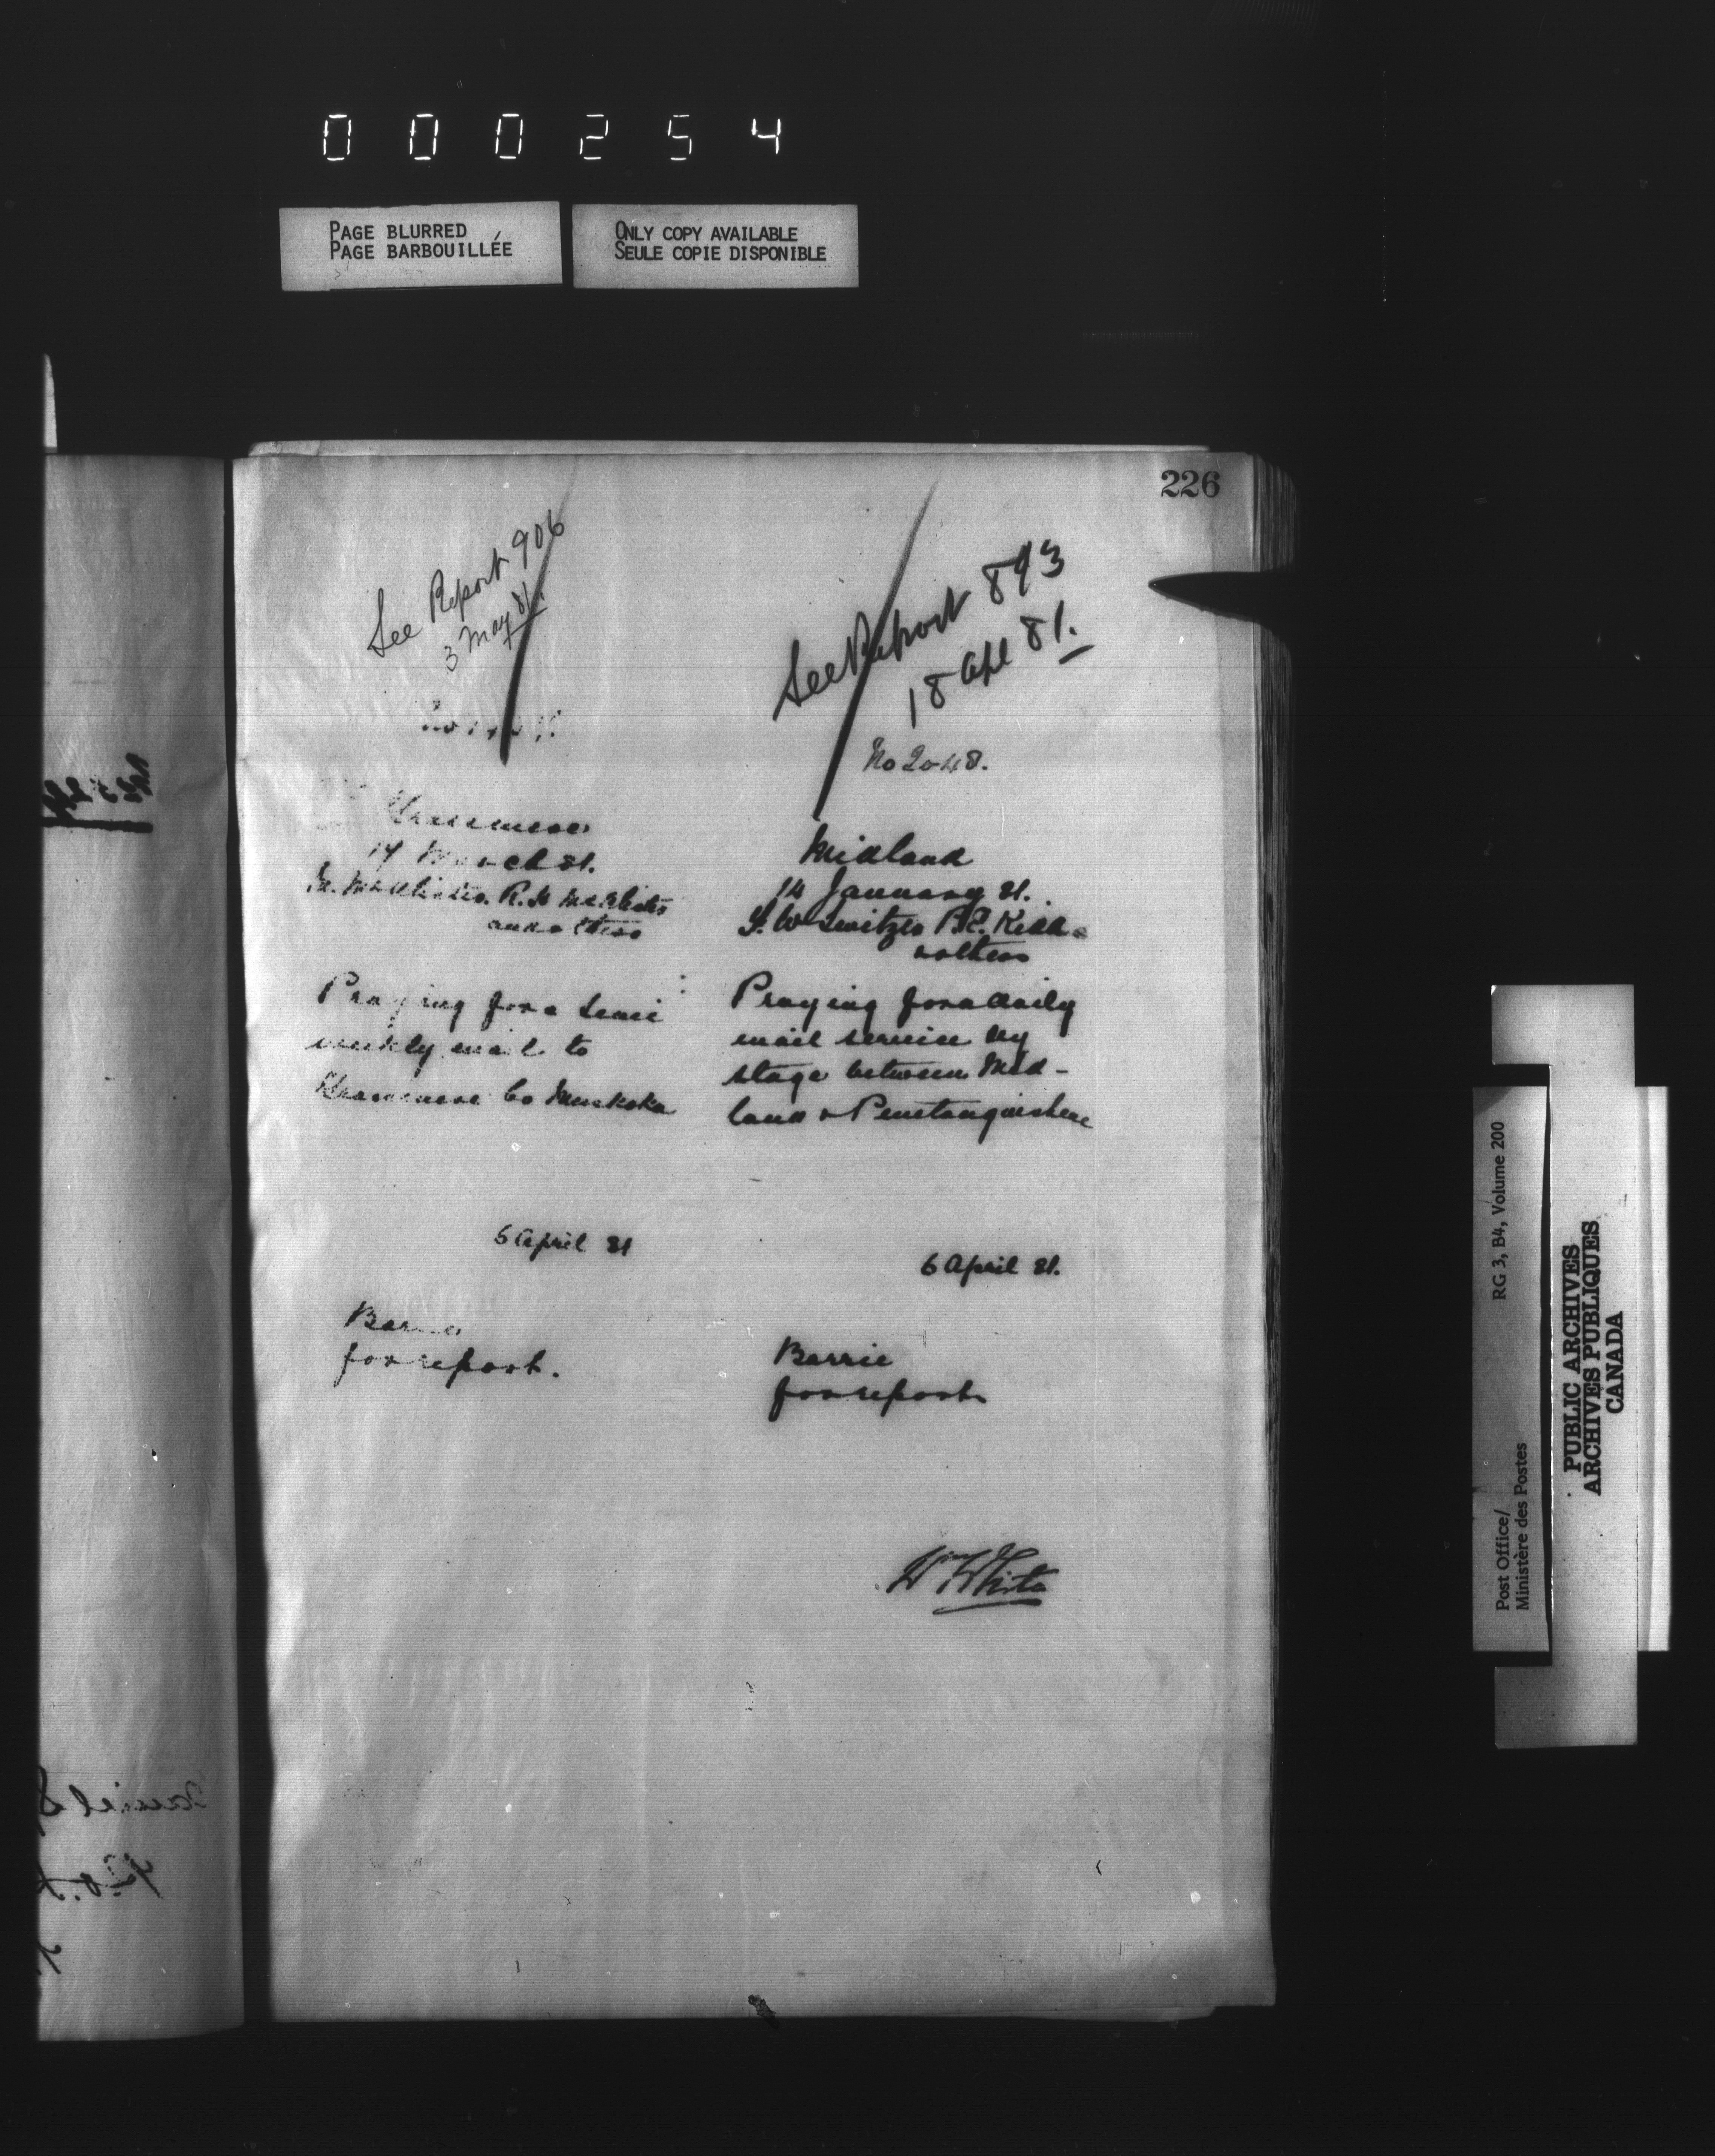 000254
PAGE BLURRED
PAGE BARBOUILLÉE
ONLY COPY AVAILABLE
SEULE COPIE DISPONIBLE
226
See Report 906
3 May 81.
March 81.
and others
Praying for a Semi
weekly mail to
Co Muskoka
6 April 81
for report.
See Report 893
18 Apl 81.
No 2048.
Midland
14 January 81.
Switzer
& others
Praying for a daily
mail service by
stage between Mid-
land & Penetanguishene
6 April 81.
Barrie
for report
Wm White
RG 3, B4, Volume 200
Post Office/
Ministère des Postes
PUBLIC ARCHIVES
ARCHIVES PUBLIQUES
CANADA